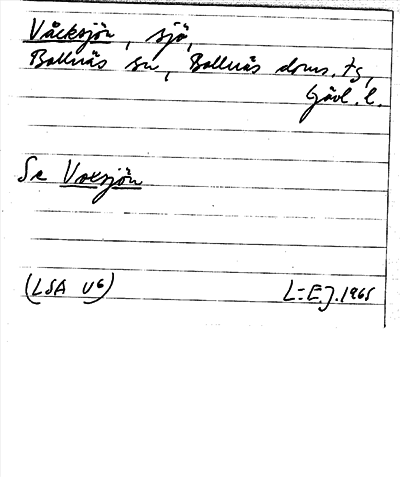 Våcksjön, sjö,
Bollnäs sn, Bollnäs doms. tg,
Gävl. l.
Se Voxsjön
(LSA V6)
L-E.J. 1965